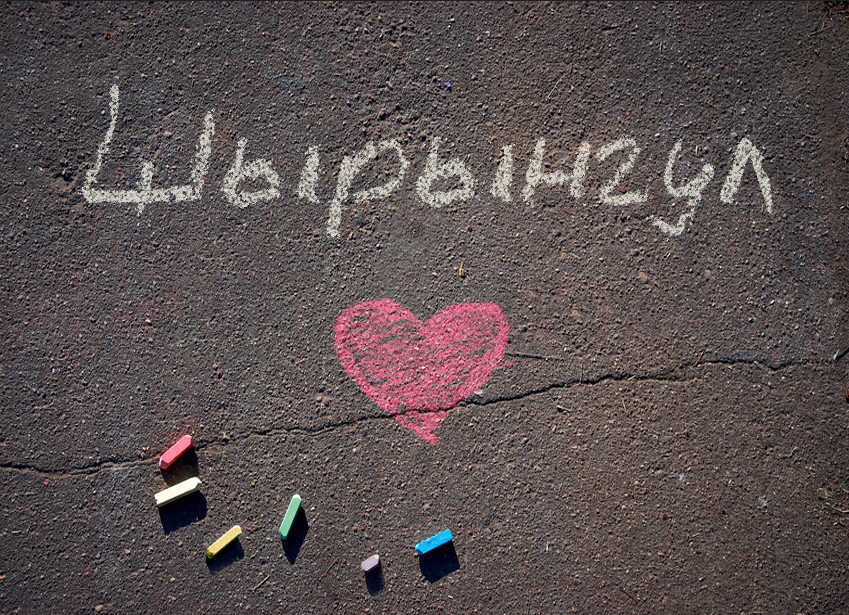 Шырынгул